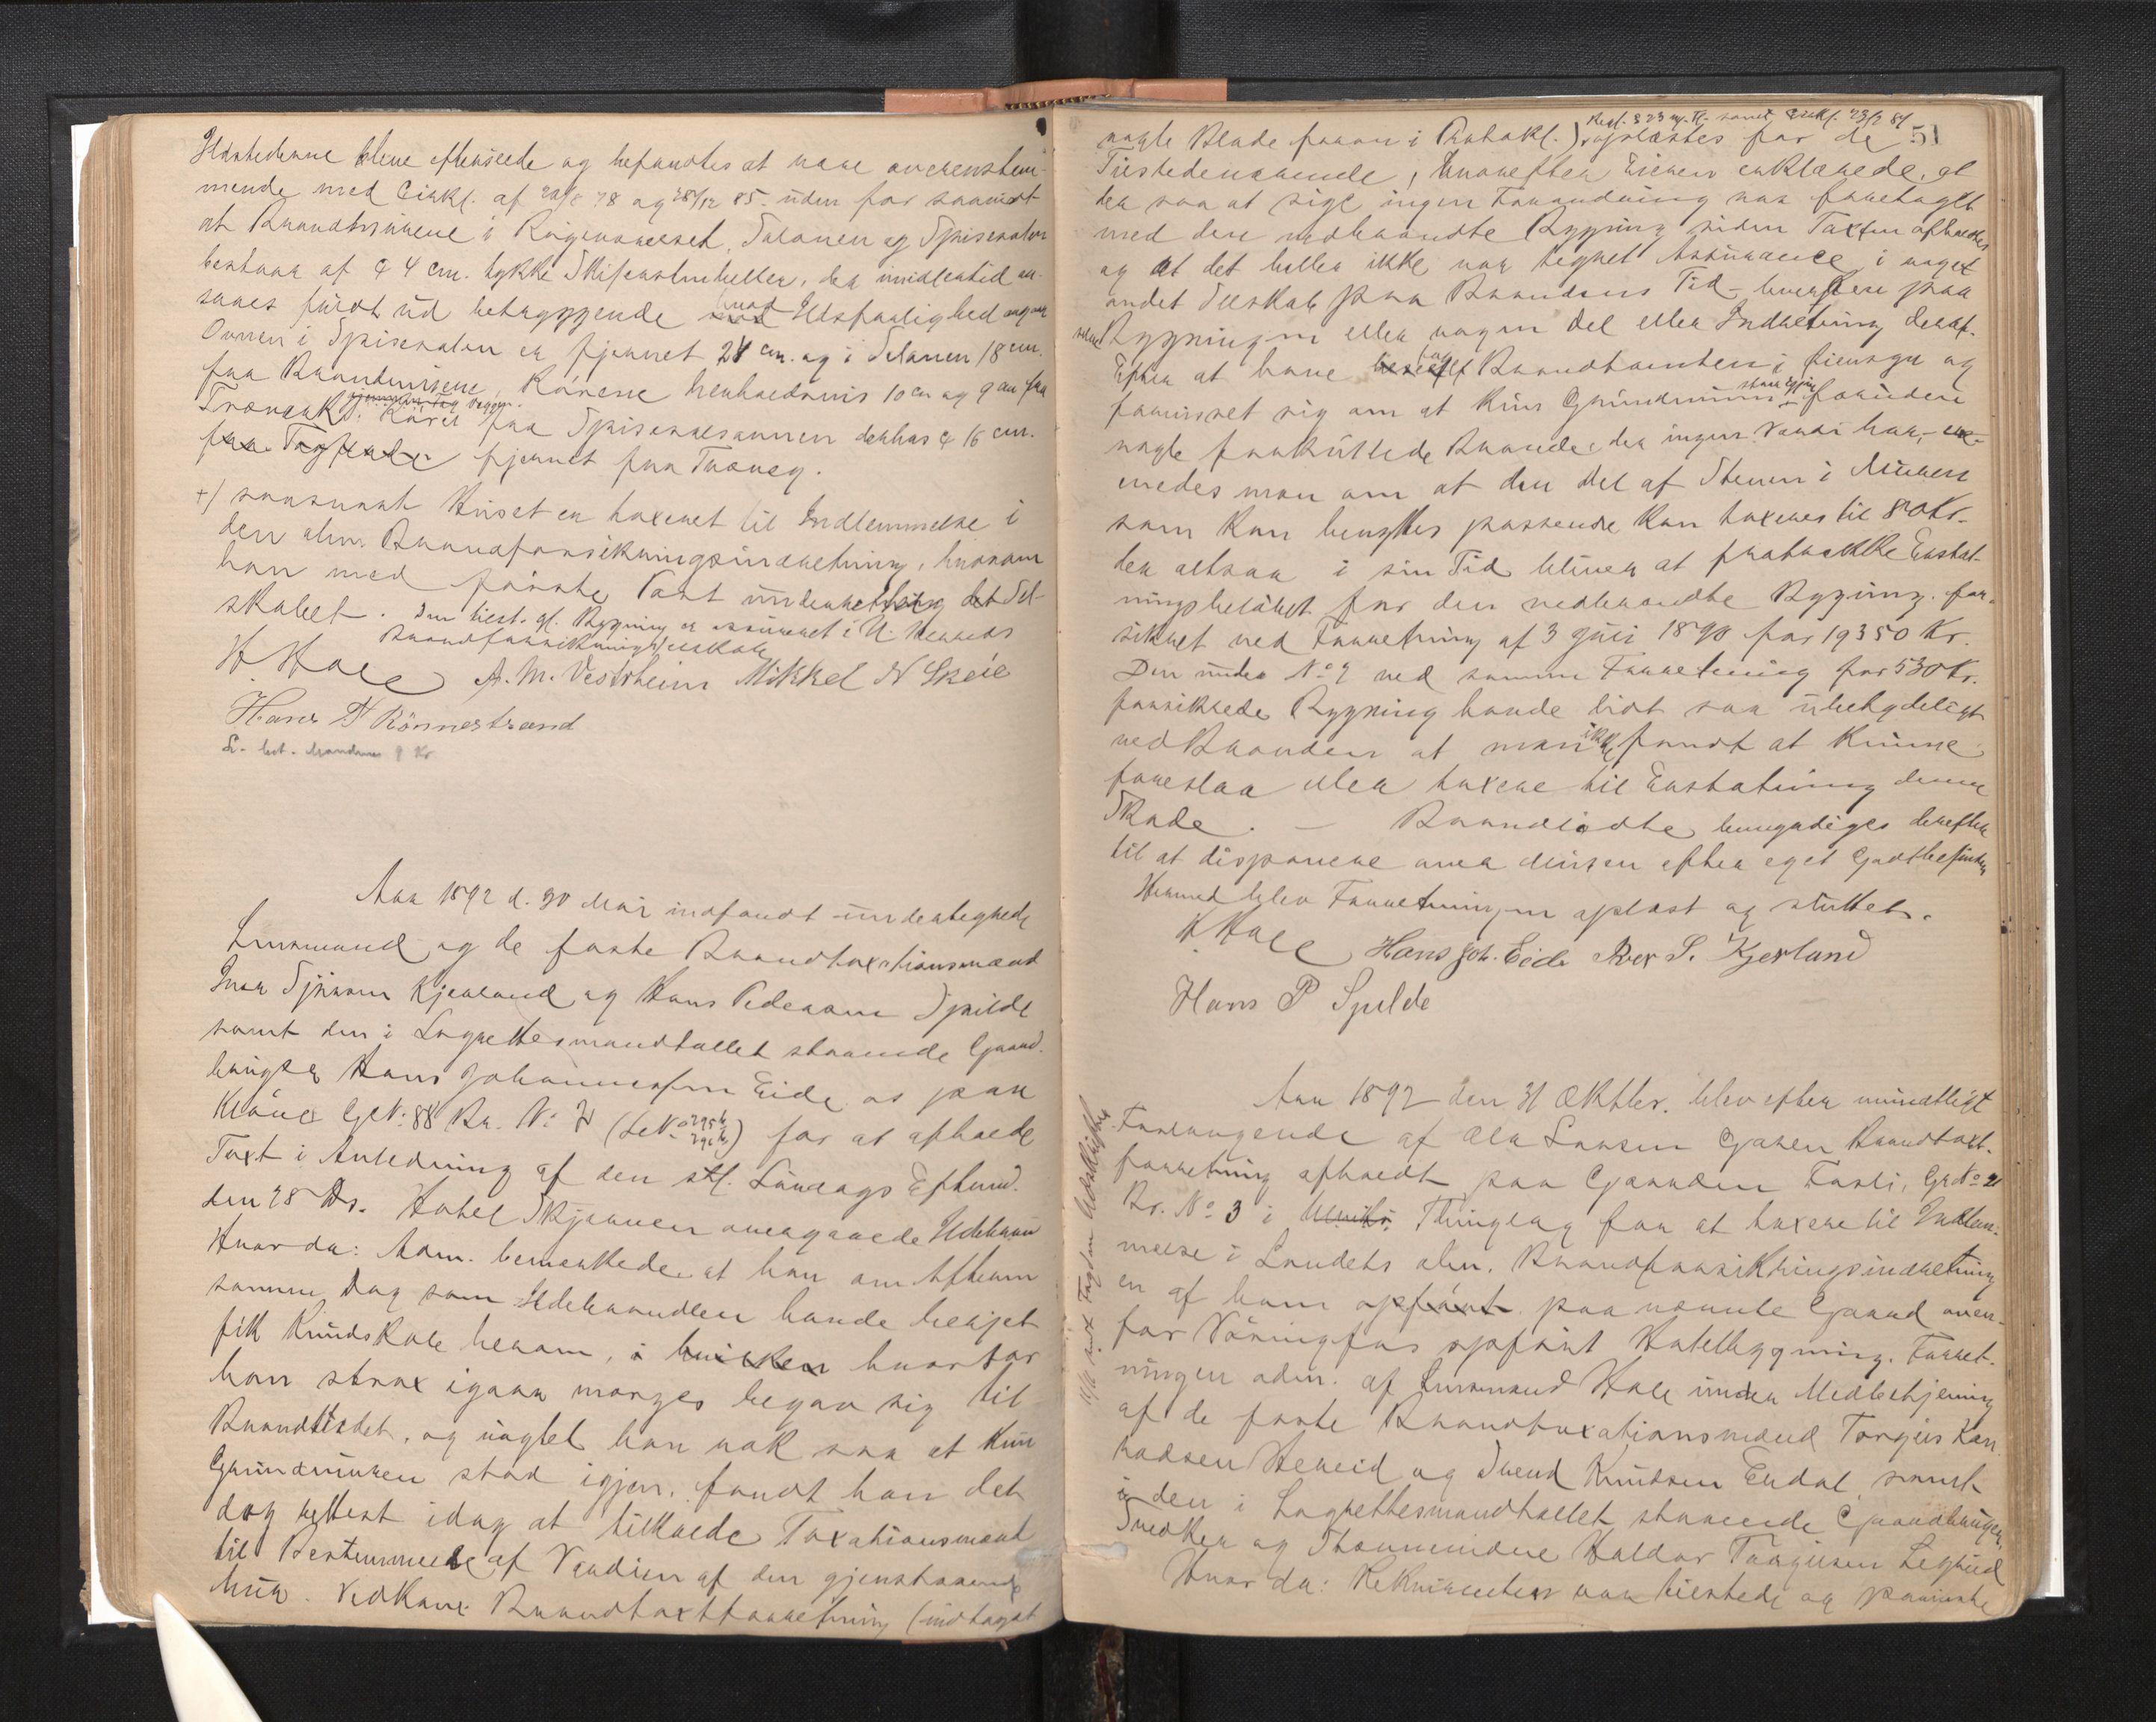 Ildstederne bleve efterseede og befandtes at være overenstem-
mende med Cirkl. af 20/8 78 og 28/12 85. uden for saavidt
at Brandmurene i Røgeværelset, Salonen og Spisesalon
bestaar af 4 cm. tykke Skifersteinheller, der imidlertid an-
saaes fuldt ud betryggende hvad Ildsfarlighed angaar
Ovnen i Spisesalon er fjernet 24 cm. og i Salonen 18 cm.
fra Brandmurene, Rørene henholdsvis 10 cm og 9 cm fra
Træværk. Røret fra Spisesalsovnen derhos 16 cm.
fjernet fra Trævæg.
+) saasnart Huset er taxeret til Indlemmelse i
den alm. Brandforsikringsindretning, hvorom
han med første Post underretter det Sel-
skabet. Den best. gl. Bygning er assureret i N. Herreds
Brandforsikringsselskab
H Hole A. M. Vestrheim Mikkel N Skeie
Hans T Rönnestrand
L. bet. Mændene 9 Kr.
Aar 1892 d. 30 Mai indfandt undertegnede
Lensmand og de faste Brandtaxationsmænd
Iver Sjursen Kjerland og Hans Pedersen Spilde
samt den i Lagrettesmandtallet staaende Gaard-
bruger Hans Johannessen Eide os paa
Gr. N: 88 Br. N: 2 for at afholde
Taxt i Anledning af den Søndags Efterm.
den 28 Hotel Skjerven overgaaede Ildebrand
Hvor da: Adm. bemærkede at han om Aftenen
samme Dag som Ildebranden havde herjet
fik Kundskab herom, i hvilken hvorfor
han strax igaar morges begav sig til
Brandstedet, og uagtet han nok saa at kun
Grundmuren stod igjen, fandt han det
dog rettest idag at tilkalde Taxationsmænd
til Bestemmelse af Værdien af den gjenstaaende
Mur. Vedkom. Brandtaxtforretning (indtaget
Regl. § 23 Cirkl. 23/2 81
51
nogle Blade foran i Protokl.) oplæstes for de
Tilstedeværende, hvorefter Eieren erklærede, at
der saa at sige ingen Forandring var foretaget
med den nedbrændte Bygning siden Taxten afholdtes
og at det heller ikke var tegnet Assurance i noget
andet Selskab paa Brandens Tid - hverken paa
selve Bygningen eller nogen Del eller Indretning deraf.
Efter at have taget Brandtomten i Øiensyn og
forvisset sig om at kun Grundmuren staar igjen foruden
nogle forkullede Brande, der ingen Værdi har, ene-
nedes man om at den Del af Stenen i Muren
som kan benyttes passende kan taxeres til 80 Kr.
der altsaa i sin Tid bliver at fratrække Erstat-
ningsbeløbet for den nedbrændte Bygning, for-
sikret ved Forretning af 3 Juli 1890 for 19350 Kr.
Den under No 2 ved samme Forretning for 530 Kr.
forsikrede Bygning havde lidt saa ubetydeligt
ved Branden at man ikke fandt at kunne
foreslaa eller taxere til Erstatning denne
Skade. — Brandlidte bemyndiges derefter
til at disponere over Muren efter eget Godtbefindende
Hermed blev Forretningen oplæst og sluttet.
H Hole Hans Joh. Eide Iver S. Kjerland
Hans P Spilde
Aar 1892 den 31 Oktbr. blev efter mundtligt
Forlangende af Ole Larsen Garen Brandtaxt-
forretning afholdt paa Gaarden Fosli, Gr. No 21
Br. No 3 i Thinglag for at taxere til Indlem-
melse i Landets alm. Brandforsikringsindretning
en af ham opført paa nævnte Gaard oven-
for Vöringfos opført Hotelbygning. Forret-
ningen adm. af Lensmand Hole under Medbetjening
af de faste Brandtaxationsmænd Torgeis Kon-
radsen Hereid og Svend Knudsen Erdal, samt
den i Lagrettesmandtallet staaende Gaardbruger,
Snedker og Tømmermand Haldor Torgilsen Legreid
Hvor da: Rekvirenten var tilstede og paaviste